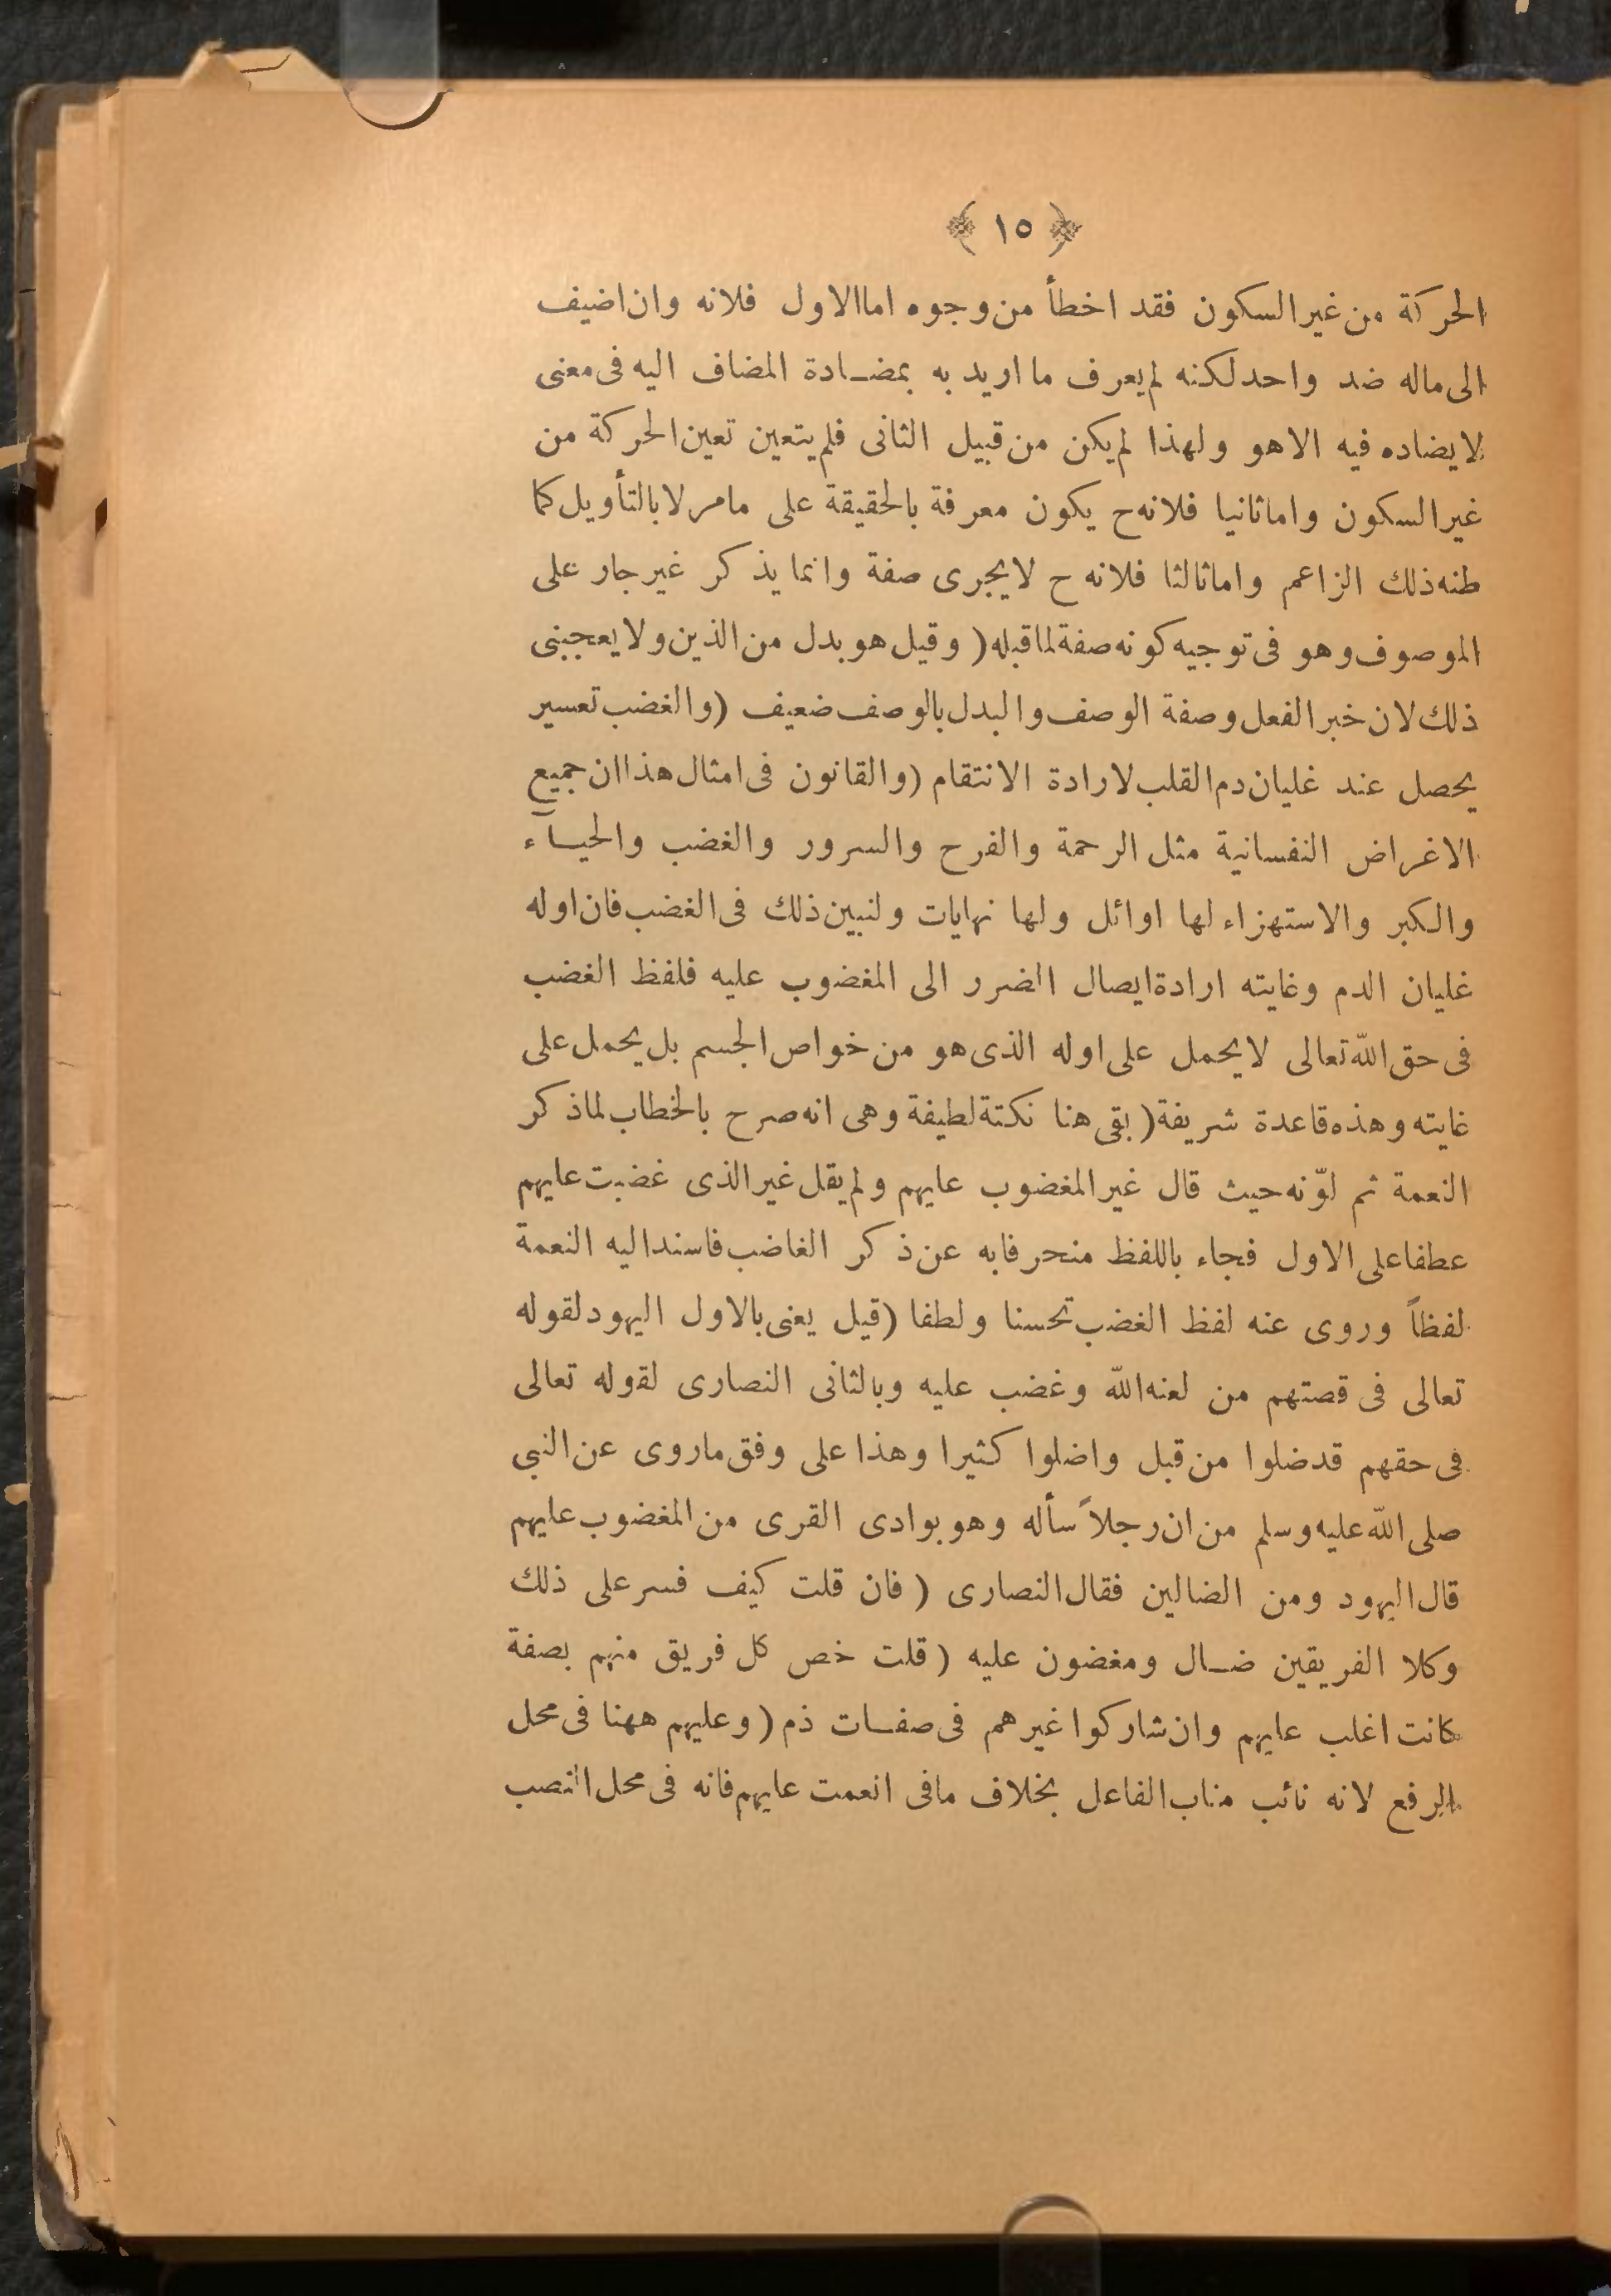 ﴿ ١٥ ﴾
الحركة من غير السكون فقد اخطأ من وجوه اما الاول فلانه وان اضيف
الى ماله ضد واحد لكنه لم يعرف ما اريد به بمضادة المضاف اليه فى معنى
لا يضاده فيه الا هو ولهذا لم يكن من قبيل الثانى فلم يتعين تعين الحركة من
غير السكون واما ثانيا فلانه ح يكون معرفة بالحقيقة على مامر لا بالتأويل كما
ظنه ذلك الزاعم واما ثالثا فلانه ح لا يجرى صفة وانما يذكر غير جار على
الموصوف وهو فى توجيه كونه صفة لما قبله ( وقيل هو بدل من الذين ولا يعجبنى
ذلك لان خبر الفعل وصفة الوصف والبدل بالوصف ضعيف ( والغضب تعسير
يحصل عند غليان دم القلب لارادة الانتقام ( والقانون فى امثال هذا ان جميع
الاغراض النفسانية مثل الرحمة والفرح والسرور والغضب والحيآء
والكبر والاستهزاء لها اوائل ولها نهايات ولنبين ذلك فى الغضب فان اوله
غليان الدم وغايته ارادة ايصال الضرر الى المغضوب عليه فلفظ الغضب
فى حق الله تعالى لا يحمل على اوله الذى هو من خواص الجسم بل يحمل على
غايته وهذه قاعدة شريفة ( بقى هنا نكتة لطيفة وهى انه صرح بالخطاب لما ذكر
النعمة ثم لوّنه حيث قال غير المغضوب عليهم ولم يقل غير الذى غضبت عليهم
عطفا على الاول فجاء باللفظ منحرفا به عن ذكر الغاضب فاسند اليه النعمة
لفظاً وروى عنه لفظ الغضب تحسنا ولطفا ( قيل يعنى بالاول اليهود لقوله
تعالى فى قصتهم من لعنه الله وغضب عليه وبالثانى النصارى لقوله تعالى
فى حقهم قد ضلوا من قبل واضلوا كثيرا وهذا على وفق ماروى عن النبي
صلى الله عليه وسلم من ان رجلاً سأله وهو بوادى القرى من المغضوب عليهم
قال اليهود ومن الضالين فقال النصارى ( فان قلت كيف فسر على ذلك
وكلا الفريقين ضال ومغضون عليه ( قلت خص كل فريق منهم بصفة
كانت اغلب عليهم وان شاركوا غيرهم فى صفات ذم ( وعليهم ههنا فى محل
الرفع لانه نائب مناب الفاعل بخلاف مافى انعمت عليهم فانه فى محل النصب